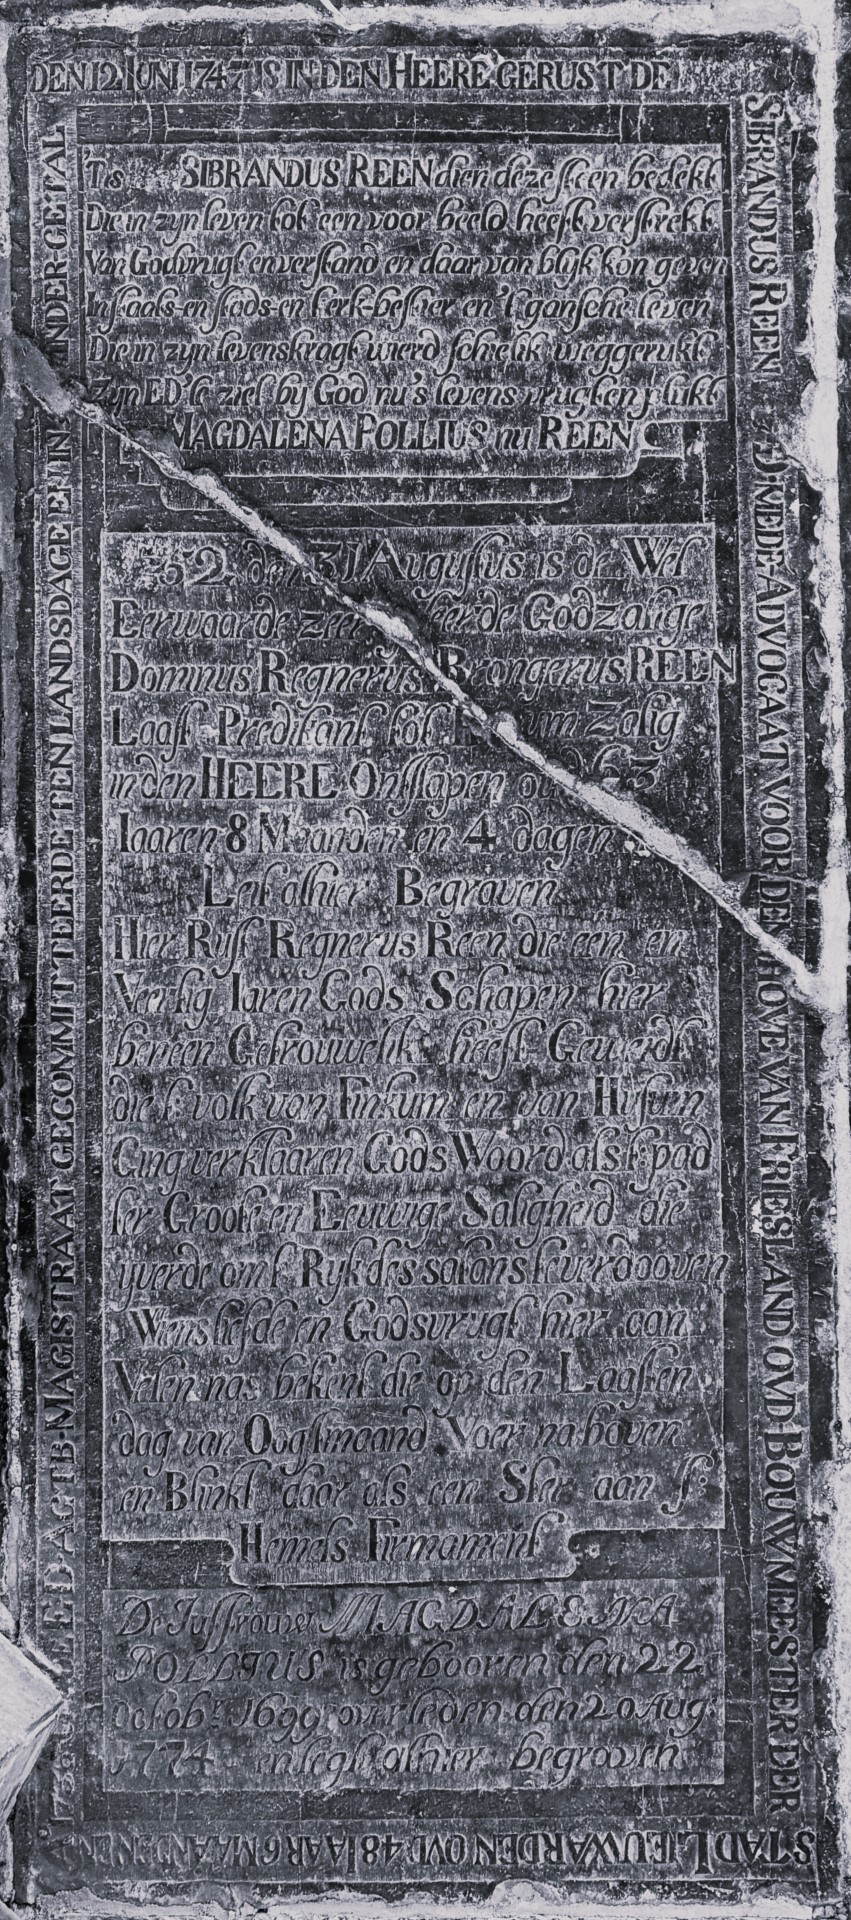 DEN 12 IUNI 1747 IS IN DEN HEERE GERUST DE
SIBRANDUS REEN MEDE ADVOCAAT VOOR DEN HOVE VAN FRIESLAND OVD-BOUWMEESTER DER
STAD LIEUWARDEN OVD 48 IAAR 6 MAANDEN EN
E.D. AGTB-MAGISTRAAT GECOMMITTEERDE TEN LANDSDAGE EN IN GETAL
'T is SIBRANDUS REEN dien deze steen bedekt
Die in zyn leven tot een voor beeld heeft verstrekt
Van Godvrugt en verstand en daar van blyk kon geven
In staats-en stads-en kerk-bestier en 't gansche leven
Die in zyn levenskragt wierd schielik weggerukt
Zyn ED'le ziel by God nu 's levens vrugten plukt
MAGDALENA POLLIUS nu REEN
den 31 Augustus is de Wel
Eerwaarde zeer Godzalige
Dominus Regnerus Brongerus REEN
Laast Predikant tot Zalig
in den HEERE Ontslapen oud 63
Iaaren 8 Maanden en 4 dagen
Leit alhier Begraven
Hier Rust Regnerus Reen die een en
Veertig Iaren Gods Schapen hier
beneen Getrouwelik heeft Geweidt
die t volk van Finkum en van Hysum
Ging verklaaren Gods Woord als t pad
ter Groote en Eeuwige Saligheid die
yverde om t Ryk des satans te verdooven
Wiens liefde en Godsvrugt hier aan
Velen nas bekent die op den Laasten
dag van Oogstmaand Voer na boven
en Blinkt daar als een Ster aan
Hemels Firmament
De Juffrouw MAGDALENA
POLLIUS is gebooren den 22
Octobr. 1699 overleden den 20 Aug:
1774 en legt alhier begraven